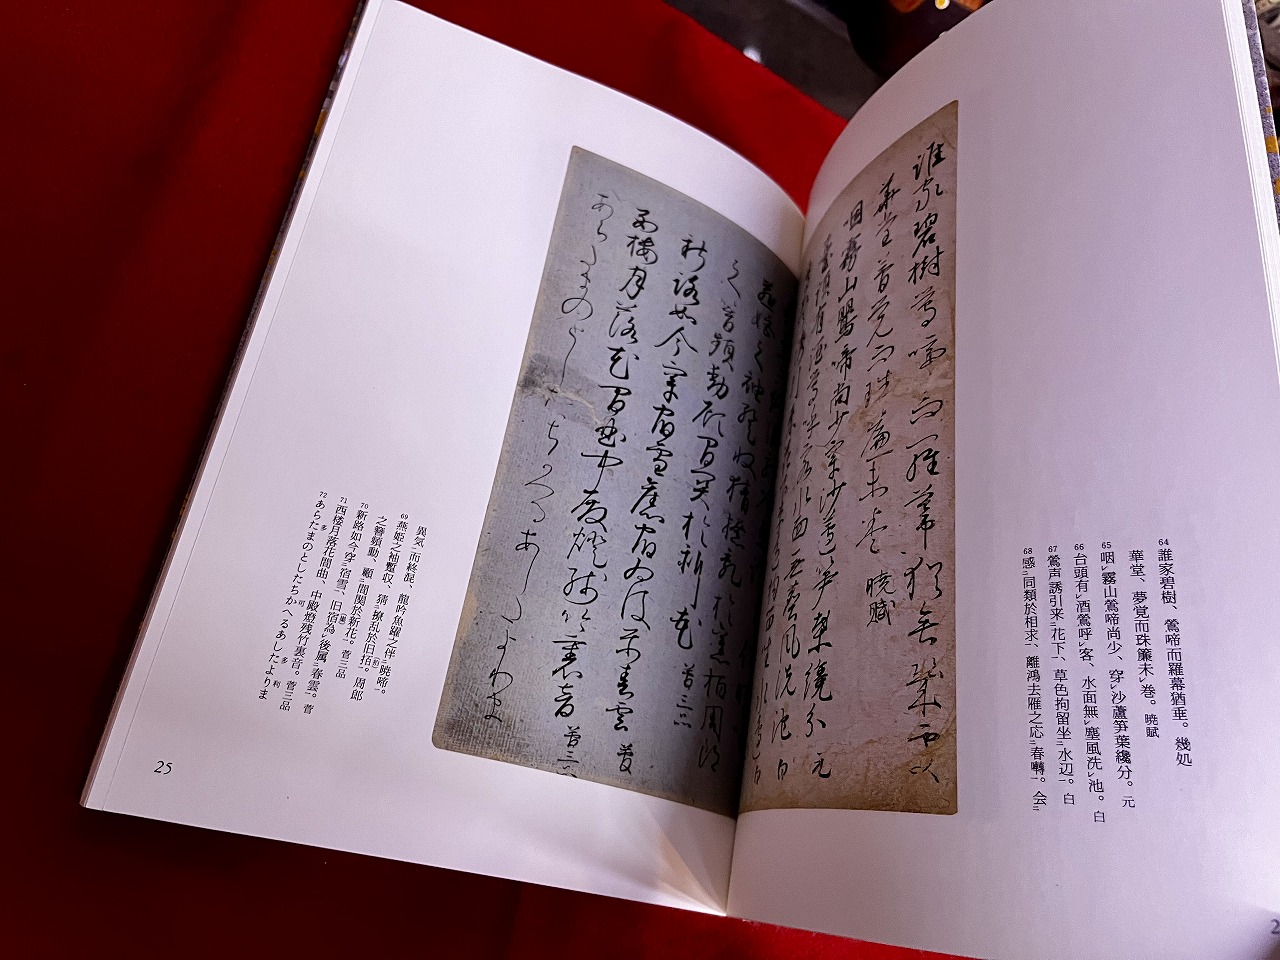 64 誰家碧樹、鶯啼而羅幕猶垂。幾処
華堂、夢覚而珠簾未レ巻。 暁賦
65 咽レ霧山鶯啼尚少、穿レ沙蘆笋葉纔分。 元
66 台頭有レ酒鶯呼レ客、水面無レ塵風洗レ池。 白
67 鶯声誘引来二花下一、草色拘留坐二水辺一。 白
68 感二同類於相求一、離鴻去雁之応二春囀一。会二
異気二而終混、龍吟魚躍之伴二暁啼一。
69 燕姫之袖蹔収、猜二撩乱於旧拍一。周郎
之簪頻動、顧二間関於新花一。 菅三品
70 新路如今穿二宿雪一、旧宿為レ後属二春雲一。 菅
71 西楼月落花間曲、中殿燈残竹裏音。 菅三品
72 あらたまのとしたちかへるあしたよりま
25
誰家碧樹鶯啼而羅幕猶垂幾処
華堂夢覚而珠簾未巻 暁賦
咽霧山鶯啼尚少穿沙蘆笋葉纔分 元
新路如今穿宿雪旧宿為後属春雲 菅
西楼月落花間曲中殿燈残竹裏音 菅三品
あらたまのとしたちかへるあしたよりま